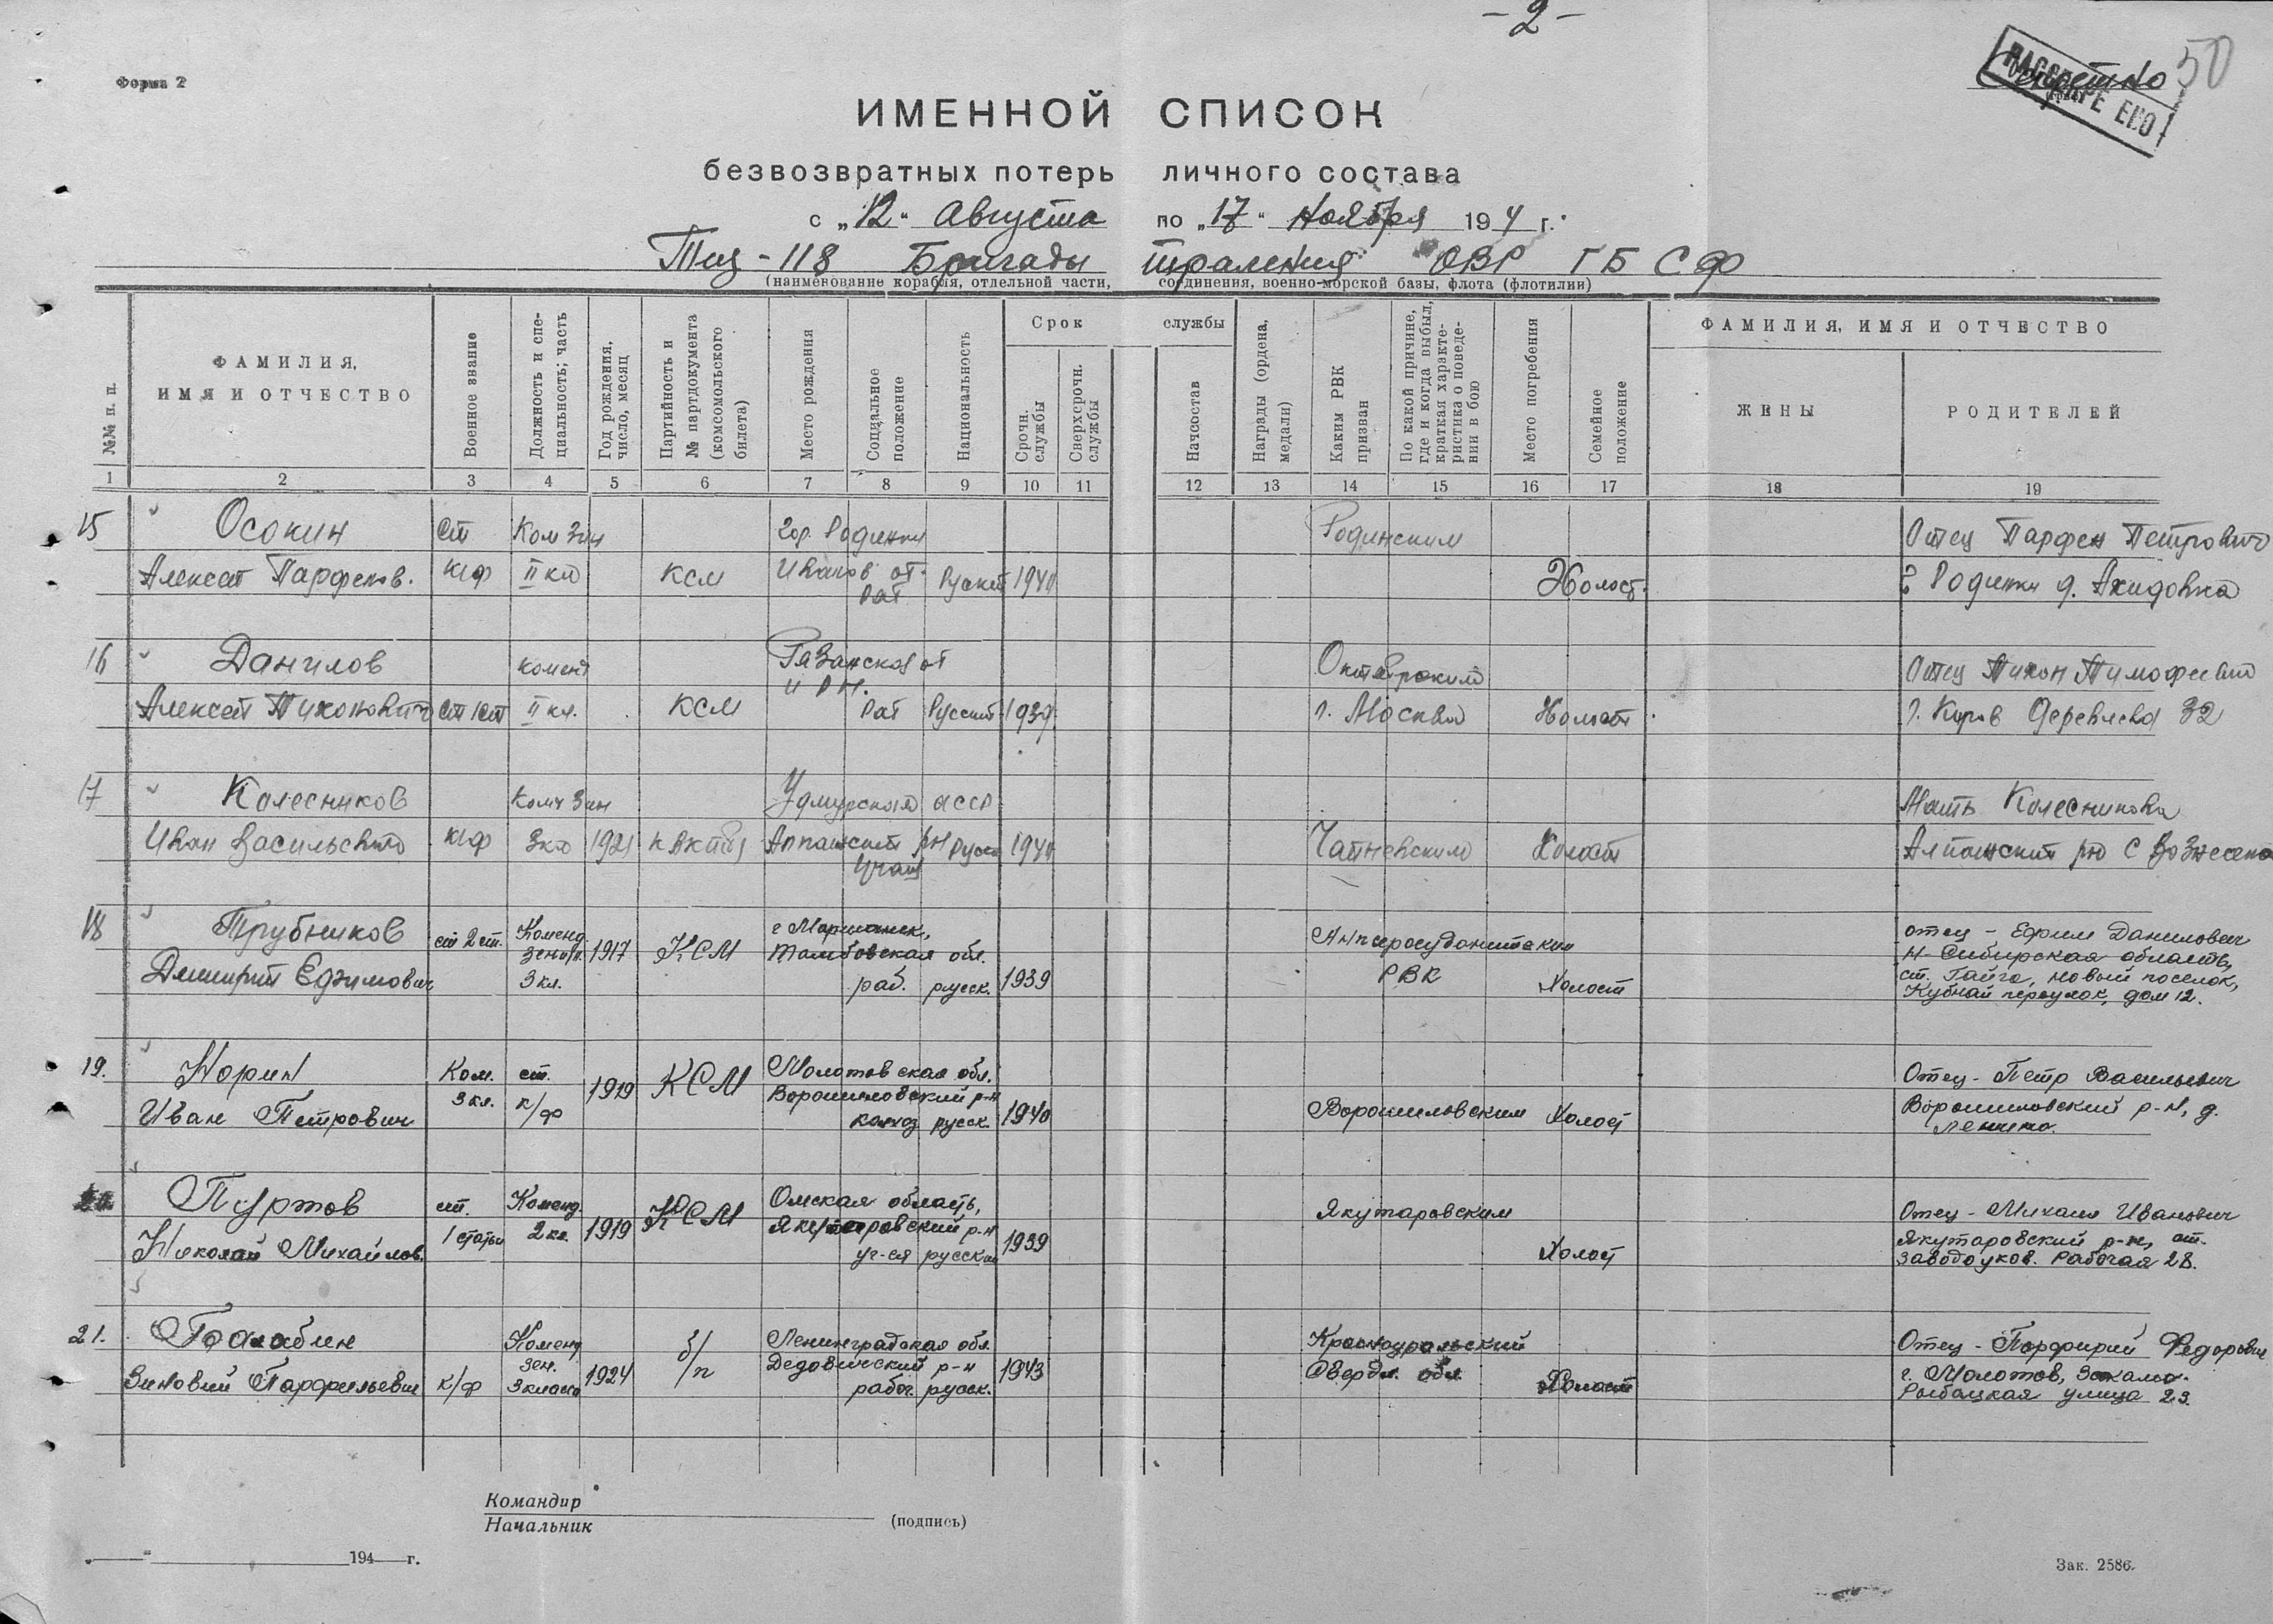 - 2 -
50
Форма 2
Секретно
РАССЕКРЕЧЕНО
ИМЕННОЙ СПИСОК
безвозвратных потерь личного состава
с „12“ Августа по „17“ Ноября 1944 г.
Тщ-118 Бригады траления ОВР ГБ СФ
(наименование корабля, отдельной части, соединения, военно-морской базы, флота (флотилии)
№№ п. п.
ФАМИЛИЯ,
ИМЯ И ОТЧЕСТВО
Военное звание
Должность и спе-
циальность; часть
Год рождения,
число, месяц
Партийность и
№ партдокумента
(комсомольского
билета)
Место рождения
Социальное
положение
Национальность
Срок службы
Срочн.
службы
Сверхсрочн.
службы
Начсостав
Награды (ордена,
медали)
Каким РВК
призван
По какой причине,
где и когда выбыл,
краткая характе-
ристика о поведе-
нии в бою
Место погребения
Семейное
положение
ФАМИЛИЯ, ИМЯ И ОТЧЕСТВО
ЖЕНЫ
РОДИТЕЛЕЙ
1 2 3 4 5 6 7 8 9 10 11 12 13 14 15 16 17 18 19
15 Осокин ст Ком зен гор. Родинки Родинским Отец Парфен Петрович
Алексей Парфенов. к/ф II кл КСМ Иванов об. раб Руский 1940 Холост. г Родинки д.
16 Данилов коменд Рязанской об Октябрьским Отец Тихон Тимофеевич
Алексей Тихонович ст 1 ст II кл. КСМ раб Русский 1939 г. Москва Холост г. Киров 32
17 Колесников Ком зен Удмурская АССР Мать Колесникова
Иван Васильевич к/ф 3 кл 1921 к ВКП(б) рн Русск 1940 Холост рн с
18 Трубников ст 2 ст. Коменд. зен. 3 кл. 1917 КСМ г Моршанск, Тамбовская обл.
Дмитрий Ефимович раб. русск. 1939 РВК Холост
отец - Ефим Данилович
Н-Сибирская область,
ст. Тайга, новый поселок,
переулок, дом 12.
19. Норин Ком. ст. 1919 КСМ Молотовская обл. Отец - Петр Васильевич
3 кл. к/ф Ворошиловский р-н
Иван Петрович колхоз русск. 1940 Ворошиловским Холост Ворошиловский р-н, д.
Ленино.
20 Пуртов ст. Коменд. КСМ Омская область, Якутаровским Отец - Михаил Иванович
1 статьи 2 кл. 1919 Якутаровский р-н
Николай Михайлов. уч-ся русский 1939 Холост Якутаровский р-н, ст.
Заводоуков. Рабочая 28.
21. Балабин Коменд б/п Ленинградская обл. Красноуральский Отец - Порфирий Федорович
зен. 1924 Дедовичский р-н 1943 Свердл. обл. г. Молотов, Закамск.
Зиновий Парфирьевич к/ф 3 класса рабоч. русск. Холост Рыбацкая улица 23.
Командир
Начальник
(подпись)
194 г.
Зак. 2586.